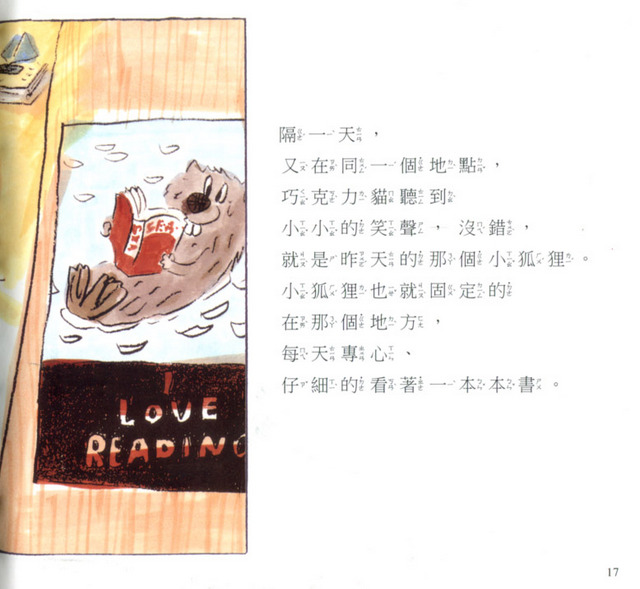 隔一天，
又在同一個地點，
巧克力貓聽到
小小的笑聲，沒錯，
就是昨天的那個小狐狸。
小狐狸也就固定的
在那個地方，
每天專心、
仔細的看著一本本書。
I
LOVE
READING
17